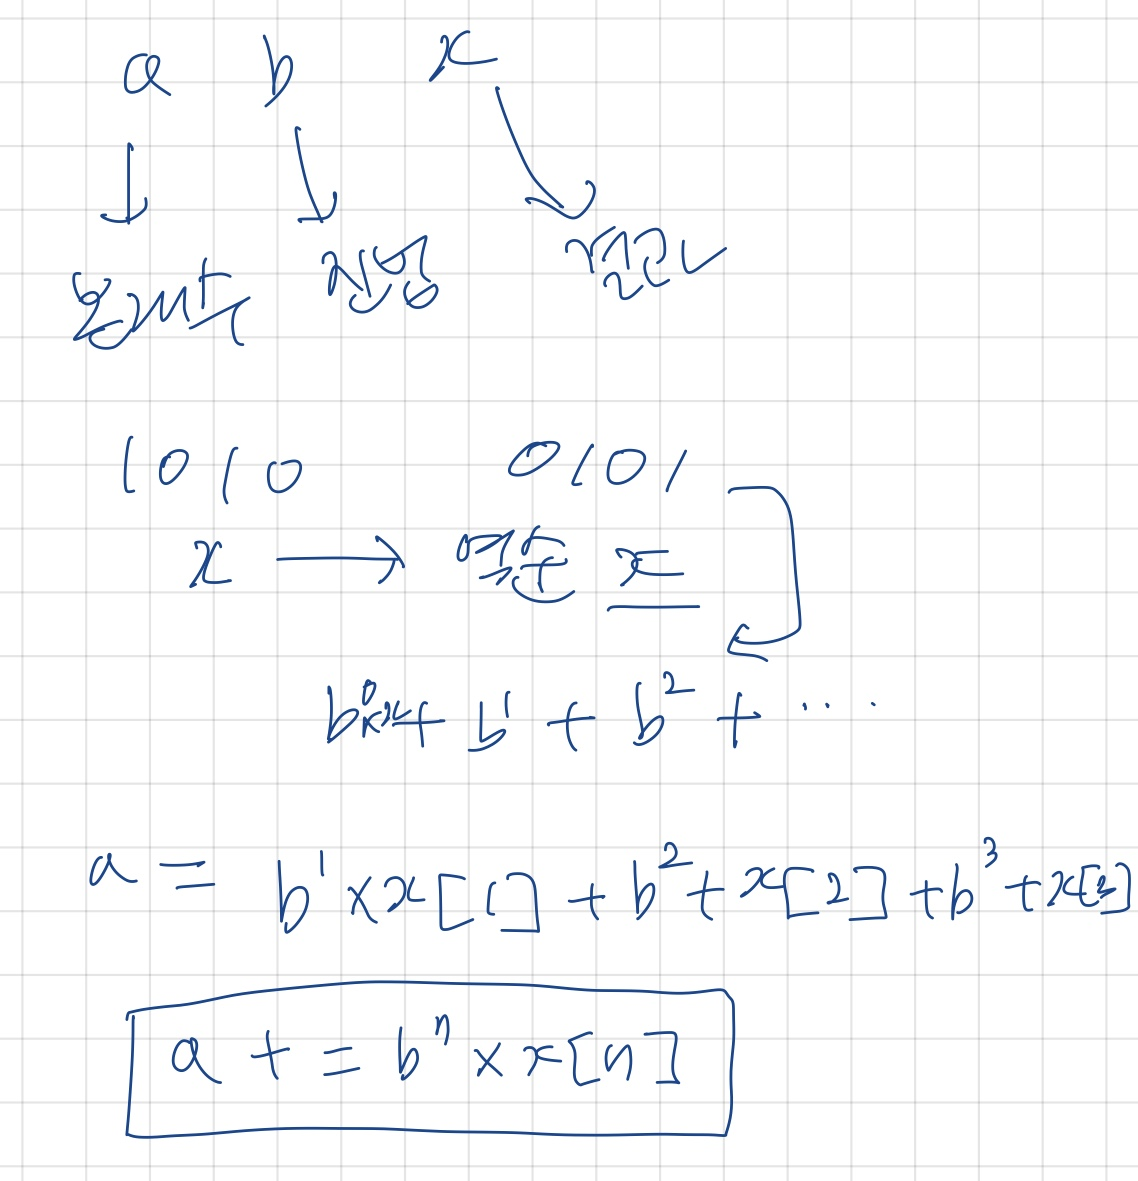 a b x
↓ ↘ ↘
진법
1010 0101
x → 역순 x
b⁰×x + b¹ + b² + ...
a = b¹ × x[1] + b² + x[2] + b³ + x[3]
a += bⁿ × x[n]